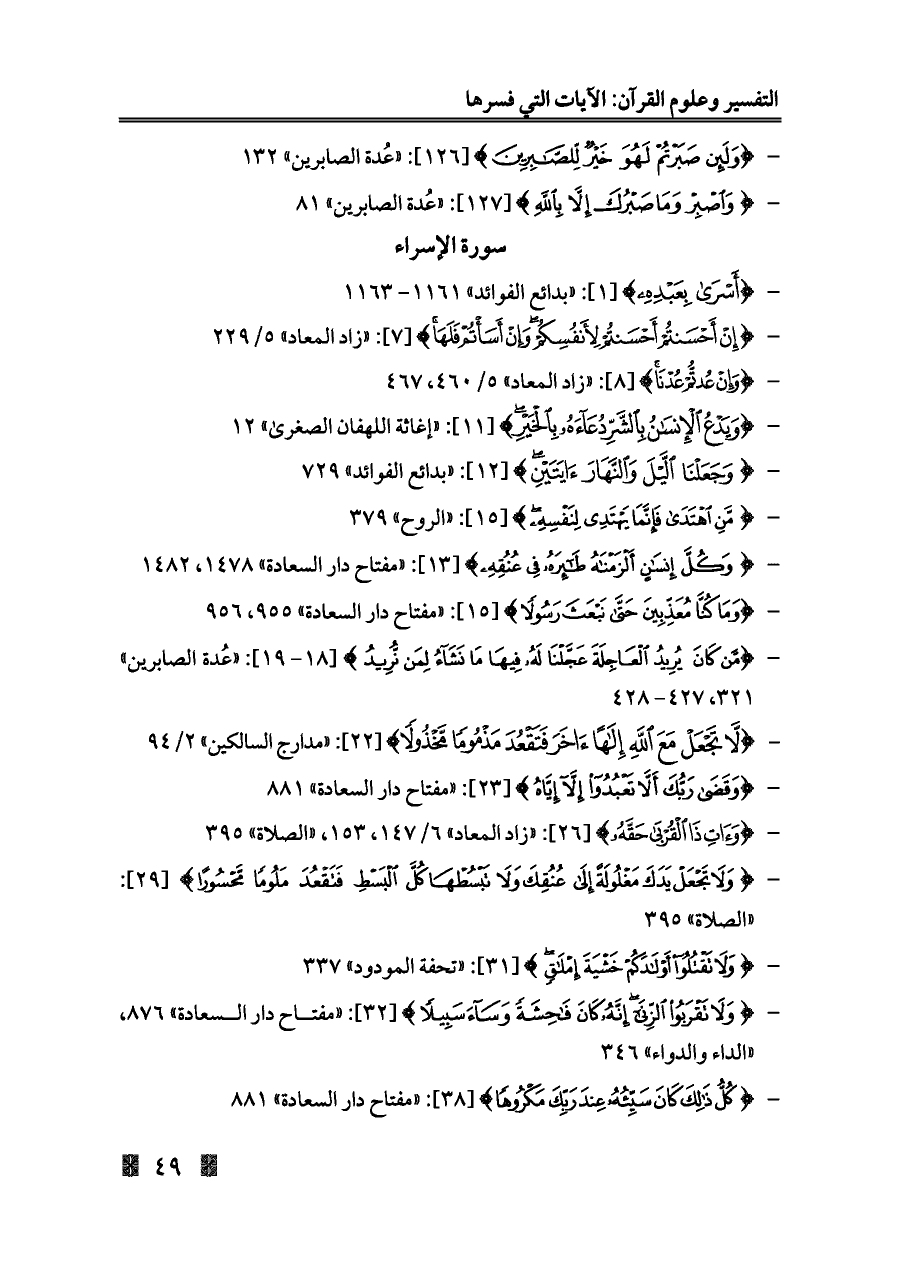 التفسير وعلوم القرآن: الآيات التي فسرها
- ﴿وَلَئِن صَبَرۡتُمۡ لَهُوَ خَيۡرٞ لِّلصَّٰبِرِينَ﴾ [١٢٦]: «عُدة الصابرين» ١٣٢
- ﴿وَٱصۡبِرۡ وَمَا صَبۡرُكَ إِلَّا بِٱللَّهِ﴾ [١٢٧]: «عُدة الصابرين» ٨١
سورة الإسراء
- ﴿أَسۡرَىٰ بِعَبۡدِهِۦ﴾ [١]: «بدائع الفوائد» ١١٦١ - ١١٦٣
- ﴿إِنۡ أَحۡسَنتُمۡ أَحۡسَنتُمۡ لِأَنفُسِكُمۡۖ وَإِنۡ أَسَأۡتُمۡ فَلَهَاۚ﴾ [٧]: «زاد المعاد» ٥/ ٢٢٩
- ﴿وَإِنۡ عُدتُّمۡ عُدۡنَاۚ﴾ [٨]: «زاد المعاد» ٥/ ٤٦٠، ٤٦٧
- ﴿وَيَدۡعُ ٱلۡإِنسَٰنُ بِٱلشَّرِّ دُعَآءَهُۥ بِٱلۡخَيۡرِۖ﴾ [١١]: «إغاثة اللهفان الصغرىٰ» ١٢
- ﴿وَجَعَلۡنَا ٱلَّيۡلَ وَٱلنَّهَارَ ءَايَتَيۡنِۖ﴾ [١٢]: «بدائع الفوائد» ٧٢٩
- ﴿مَّنِ ٱهۡتَدَىٰ فَإِنَّمَا يَهۡتَدِي لِنَفۡسِهِۦۖ﴾ [١٥]: «الروح» ٣٧٩
- ﴿وَكُلَّ إِنسَٰنٍ أَلۡزَمۡنَٰهُ طَٰٓئِرَهُۥ فِي عُنُقِهِۦ﴾ [١٣]: «مفتاح دار السعادة» ١٤٧٨، ١٤٨٢
- ﴿وَمَا كُنَّا مُعَذِّبِينَ حَتَّىٰ نَبۡعَثَ رَسُولٗا﴾ [١٥]: «مفتاح دار السعادة» ٩٥٥، ٩٥٦
- ﴿مَّن كَانَ يُرِيدُ ٱلۡعَاجِلَةَ عَجَّلۡنَا لَهُۥ فِيهَا مَا نَشَآءُ لِمَن نُّرِيدُ﴾ [١٨ - ١٩]: «عُدة الصابرين»
٣٢١، ٤٢٧ - ٤٢٨
- ﴿لَّا تَجۡعَلۡ مَعَ ٱللَّهِ إِلَٰهًا ءَاخَرَ فَتَقۡعُدَ مَذۡمُومٗا مَّخۡذُولٗا﴾ [٢٢]: «مدارج السالكين» ٢/ ٩٤
- ﴿وَقَضَىٰ رَبُّكَ أَلَّا تَعۡبُدُوٓاْ إِلَّآ إِيَّاهُ﴾ [٢٣]: «مفتاح دار السعادة» ٨٨١
- ﴿وَءَاتِ ذَا ٱلۡقُرۡبَىٰ حَقَّهُۥ﴾ [٢٦]: «زاد المعاد» ٦/ ١٤٧، ١٥٣، «الصلاة» ٣٩٥
- ﴿وَلَا تَجۡعَلۡ يَدَكَ مَغۡلُولَةً إِلَىٰ عُنُقِكَ وَلَا تَبۡسُطۡهَا كُلَّ ٱلۡبَسۡطِ فَتَقۡعُدَ مَلُومٗا مَّحۡسُورًا﴾ [٢٩]:
«الصلاة» ٣٩٥
- ﴿وَلَا تَقۡتُلُوٓاْ أَوۡلَٰدَكُمۡ خَشۡيَةَ إِمۡلَٰقٖۖ﴾ [٣١]: «تحفة المودود» ٣٣٧
- ﴿وَلَا تَقۡرَبُواْ ٱلزِّنَىٰٓۖ إِنَّهُۥ كَانَ فَٰحِشَةٗ وَسَآءَ سَبِيلٗا﴾ [٣٢]: «مفتاح دار السعادة» ٨٧٦،
«الداء والدواء» ٣٤٦
- ﴿كُلُّ ذَٰلِكَ كَانَ سَيِّئُهُۥ عِندَ رَبِّكَ مَكۡرُوهٗا﴾ [٣٨]: «مفتاح دار السعادة» ٨٨١
٤٩